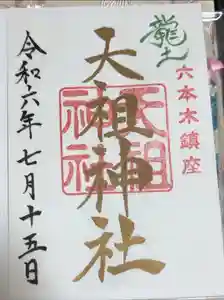 龍土
六本木鎮座
天祖神社
天祖神社
令和六年七月十五日